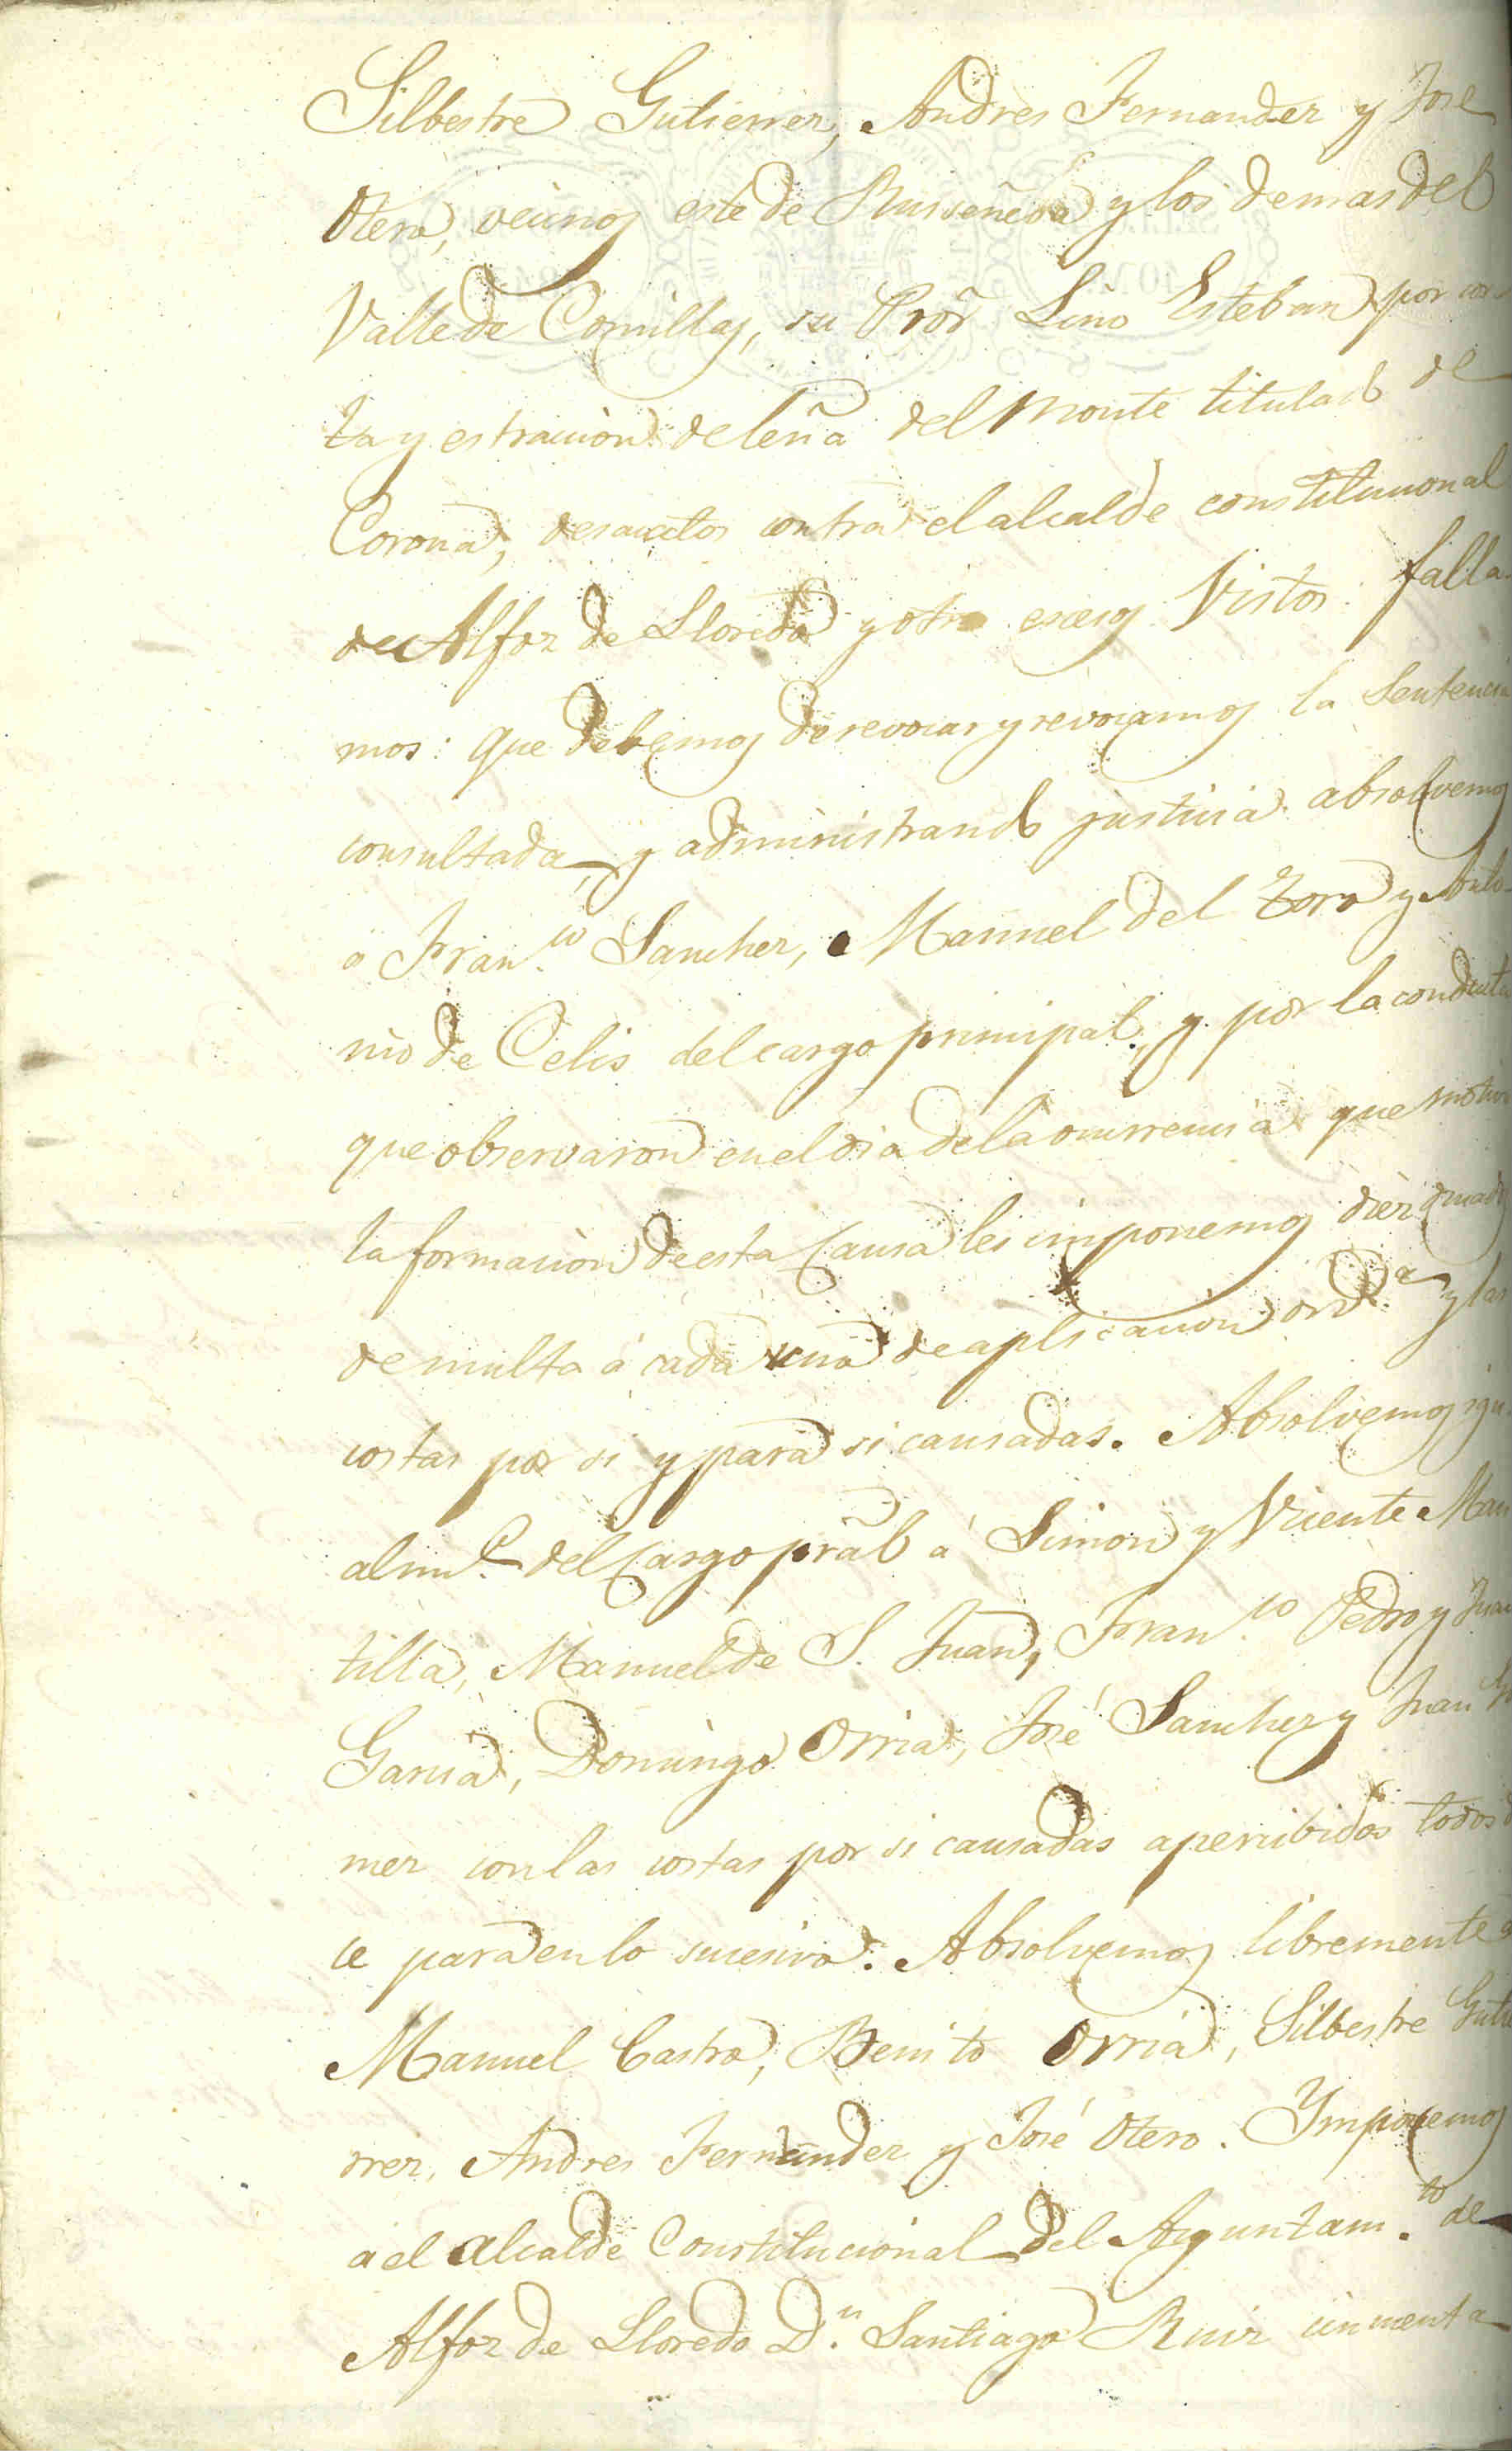 Silbestre Gutierrez, Andres Fernandez y Jose
Otero, vecinos este de Ruiseñada y los demas del
Valle de Comillas, su Pror̃ Lino Esteban por cor-
ta y estracion de leña del Monte titulado de
Corona, desacatos contra el alcalde constitucional
de Alfoz de Lloredo y otros excesos Vistos: falla-
mos: que debemos de revocar y revocamos la Sentencia
consultada, y administrando justicia absolvemos
á Fran.co Sanchez, Manuel del Toro y Anto-
nio de Celis del cargo principal, y por la conducta
que observaron en el dia de la ocurrencia que motivo
la formacion de esta Causa les imponemos diez ducados
de multa á cada uno de aplicacion ord.a y las
costas por si y para si causadas. Absolvemos igu-
alm.e del Cargo pral á Simon y Vicente Man
tilla, Manuel de S. Juan, Fran.co Pedro y Juan
Garcia, Domingo Orria, José Sanchez y Juan Go
mez con las costas por si causadas apercibidos todos d
ce para en lo sucesivo. Absolvemos libremente á
Manuel Castro, Benito Orria, Silbestre Gutie
rrez, Andres Fernandez y José Otero. Ymponemos
a el alcalde Constitucional del Ayuntam.to de
Alfoz de Lloredo D.n Santiago Ruiz cincuenta